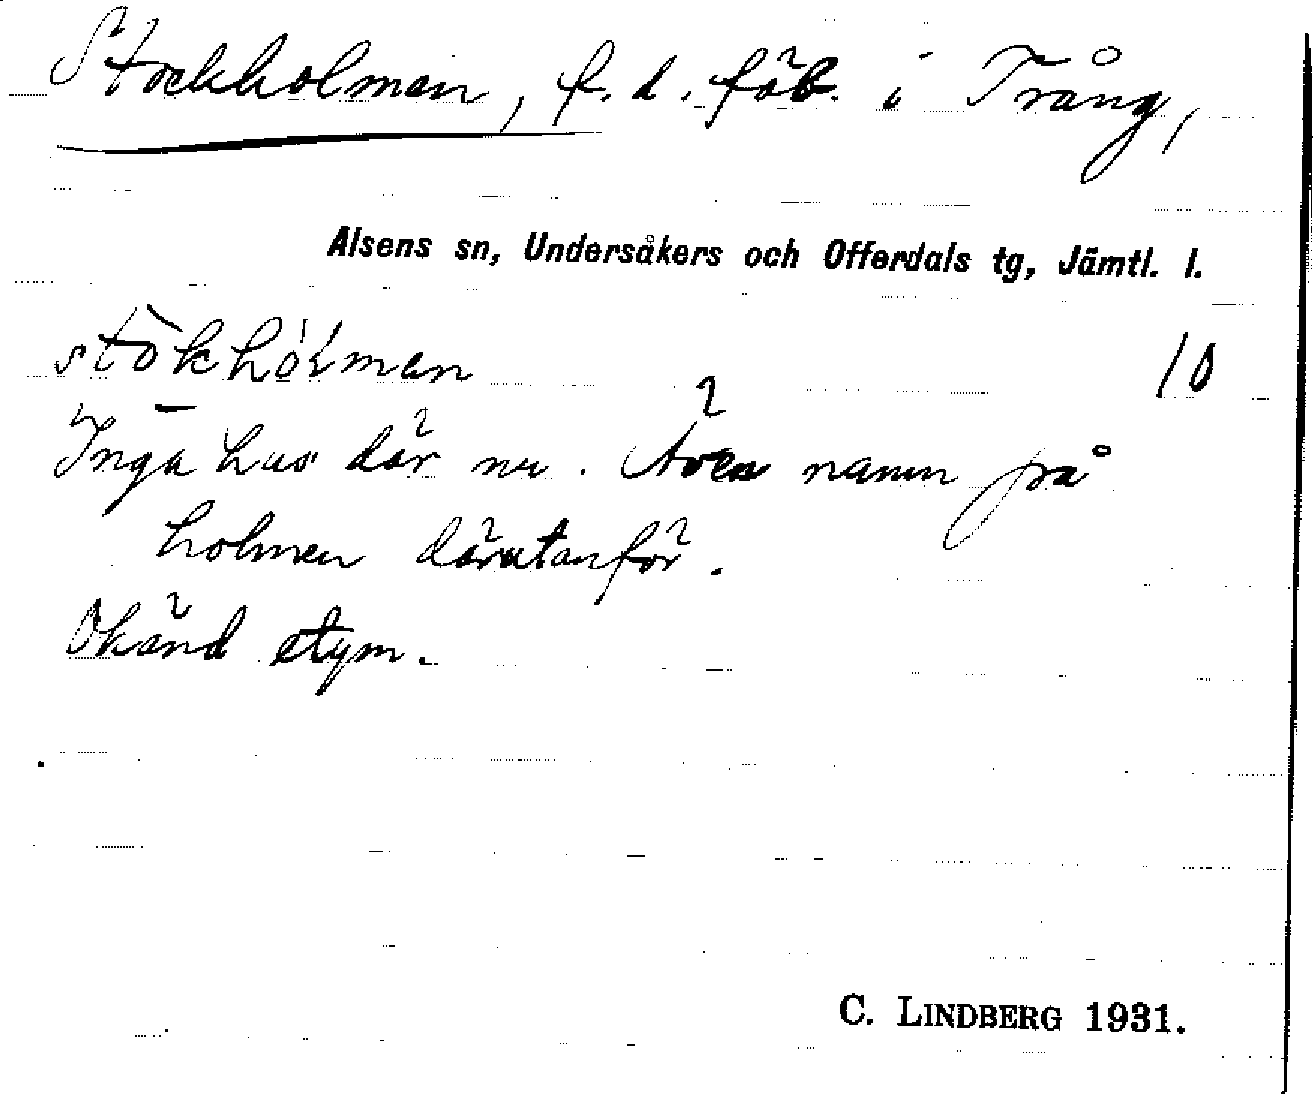 Stockholmen, f.d. fäb. i Trång,
Alsens sn, Undersåkers och Offerdals tg, Jämtl. l.
10
Inga hus där nu. Även namn på
holmen därutanför.
Okänd etym.
C. LINDBERG 1931.